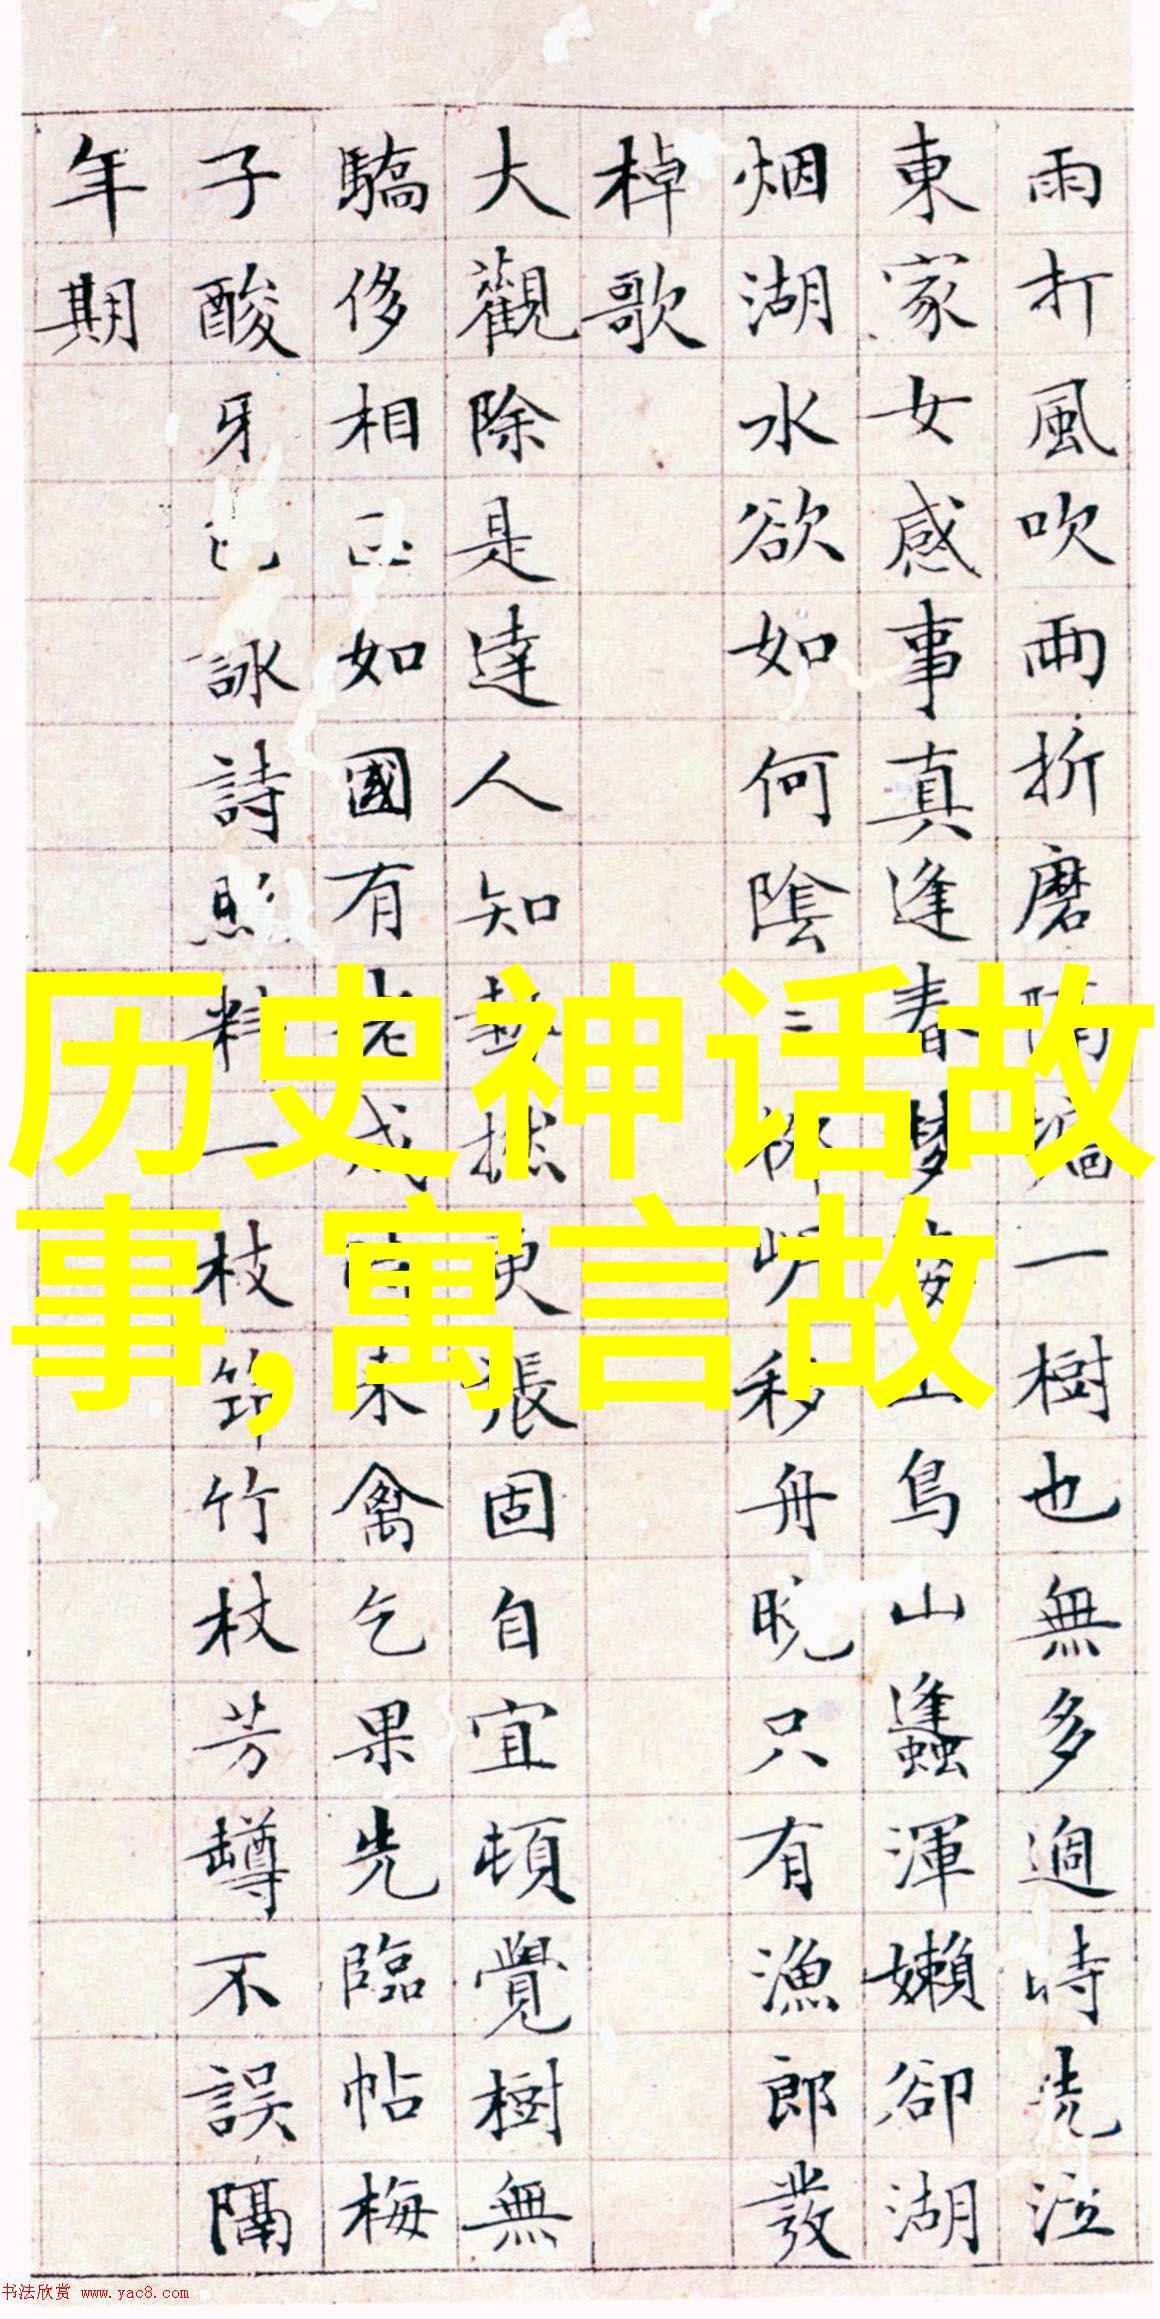 雨打風吹雨折磨隔牆一樹也無多適時洗泣
東家女感事真逢春夢山鳥山蠭渾嬾卻湖
烟湖水欲如何陰三柳岍移舟晚只有漁郎發
棹歌
大觀除是達人知藝拡更張固自宜頓覺樹無
驕侈相如國有老成未禽乞果先臨帖梅
子酸牙詠詩照料一枝筇竹杖芳罇不誤隔
年期
历史神话故
事,寓言故
书法欣赏 www.yac8.com